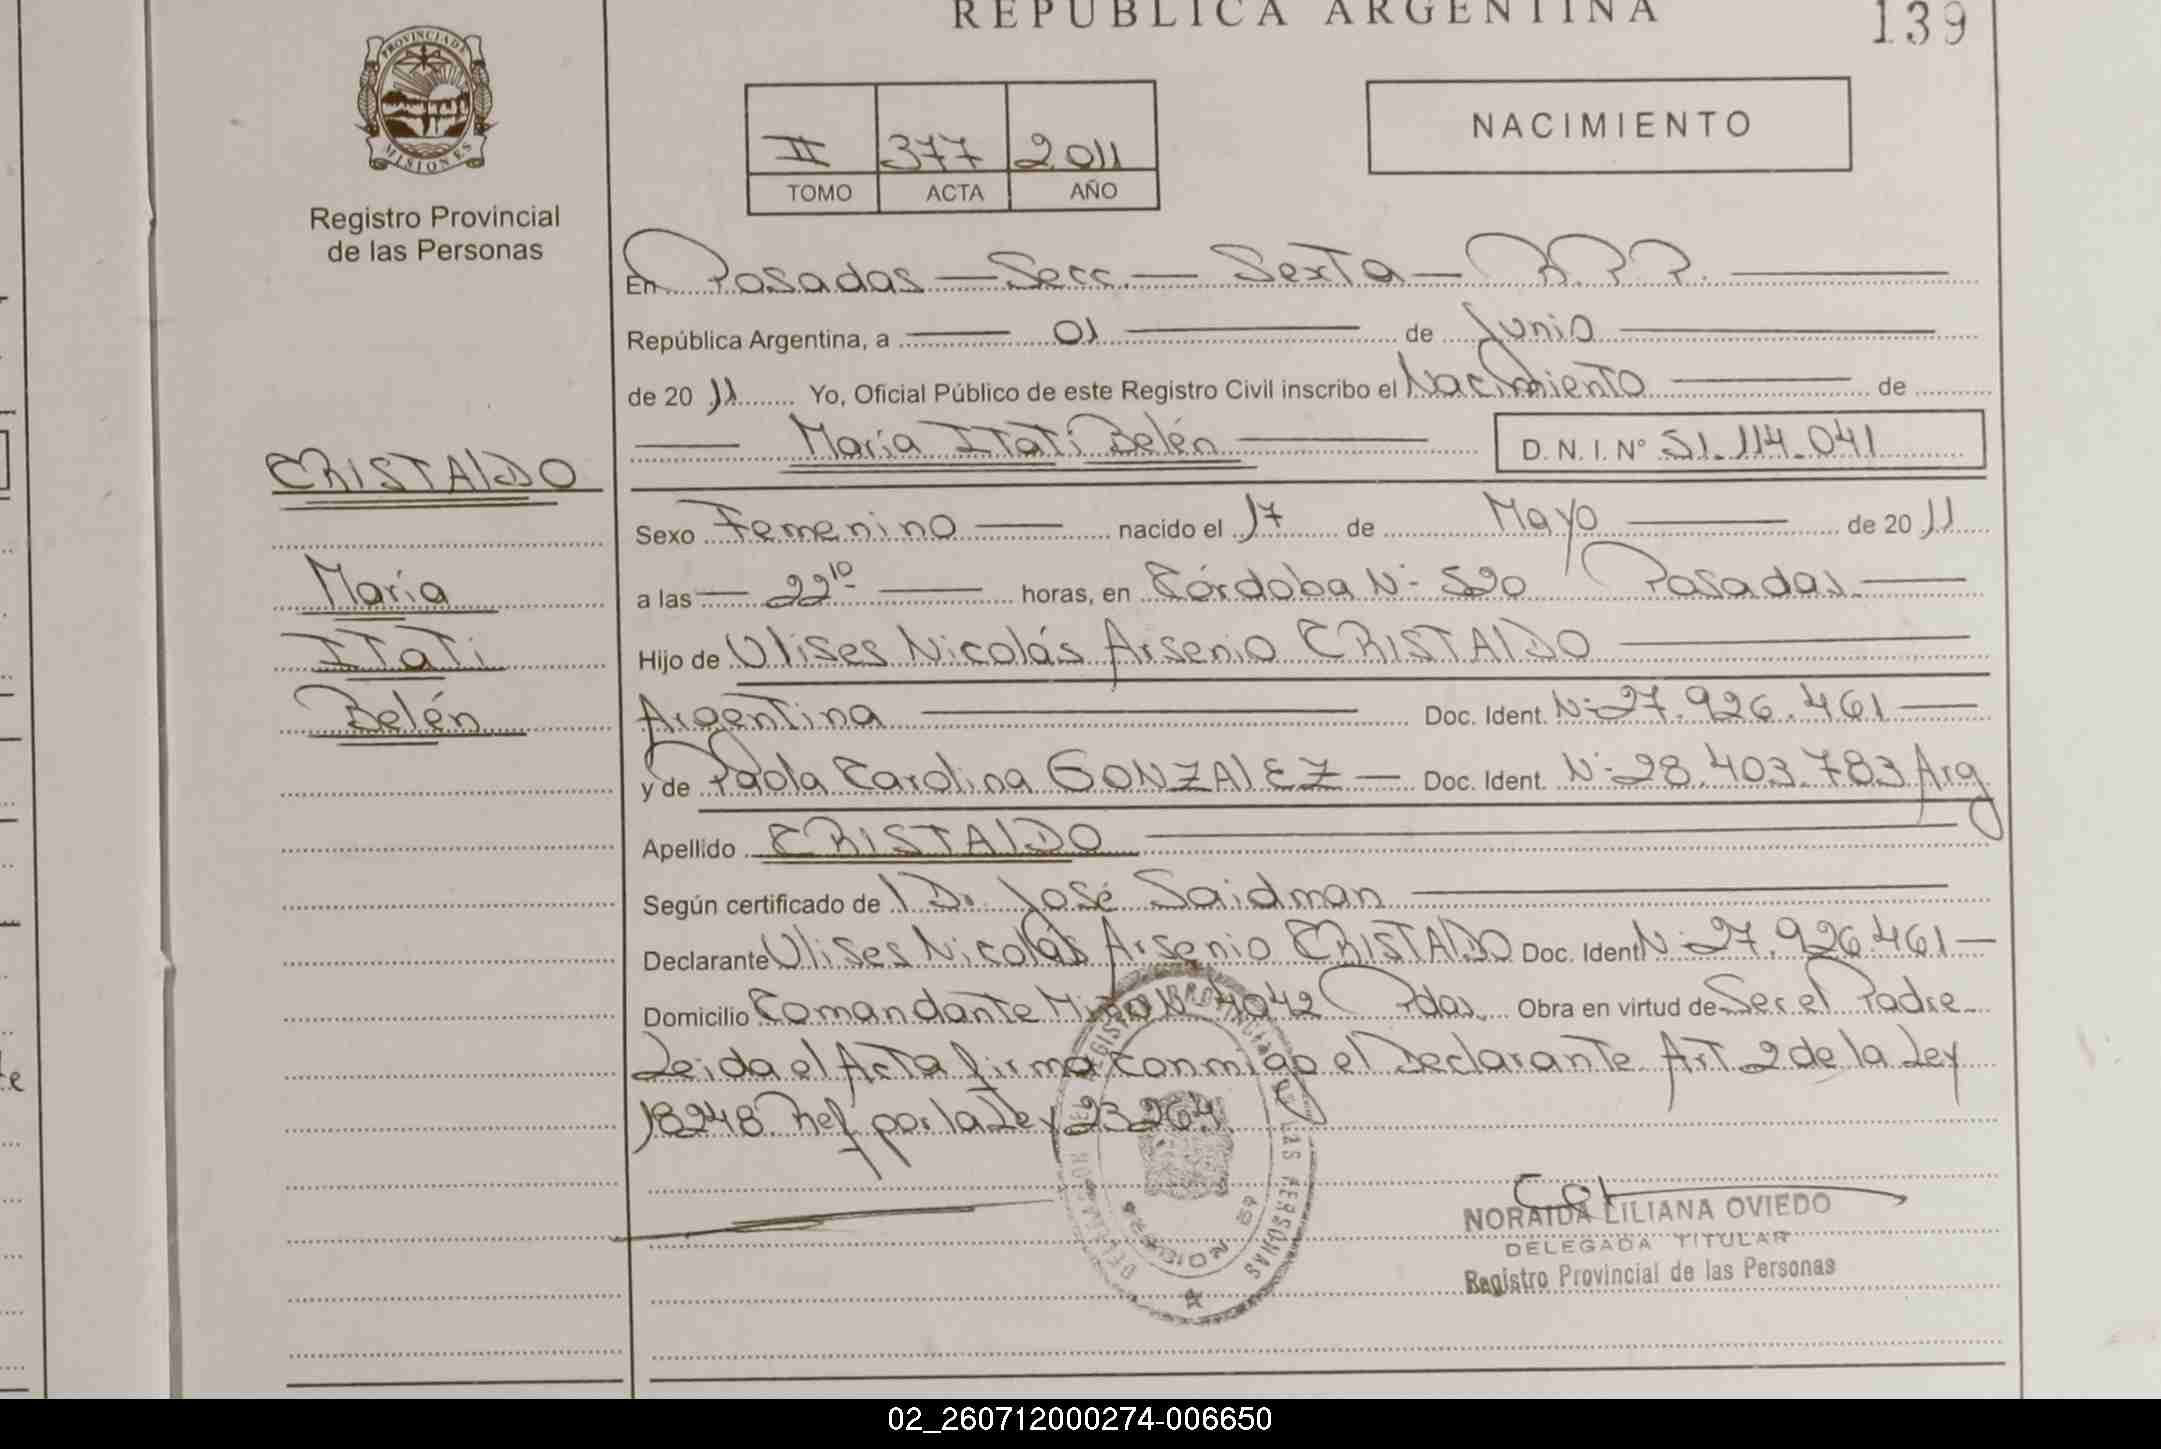 REPUBLICA ARGENTINA
139
PROVINCIA DE
MISIONES
Registro Provincial
de las Personas
II 377 2011
TOMO ACTA AÑO
NACIMIENTO
En Posadas - Secc. - Sexta - R.P.P.
República Argentina, a 01 de Junio
de 20 11 Yo, Oficial Público de este Registro Civil inscribo el Nacimiento de
María Itatí Belén D. N. I. N° 51.114.041
CRISTALDO
María
Itatí
Belén
Sexo Femenino nacido el 17 de Mayo de 20 11
a las 22 10 horas, en Córdoba N° 520 Posadas
Hijo de Ulises Nicolás Arsenio CRISTALDO
Argentina Doc. Ident. N° 27.926.461
y de Paola Carolina GONZALEZ Doc. Ident. N° 28.403.783 Arg
Apellido CRISTALDO
Según certificado de l Dr. José Saidman
Declarante Ulises Nicolás Arsenio CRISTALDO Doc. Ident N° 27.926.461
Domicilio Comandante Miño N° 4042 Pdas. Obra en virtud de Ser el Padre
Leida el Acta firma conmigo el Declarante Art 2 de la Ley
18248 Ref por la Ley 23264.
NORAIDA LILIANA OVIEDO
DELEGADA TITULAR
Registro Provincial de las Personas
02_260712000274-006650